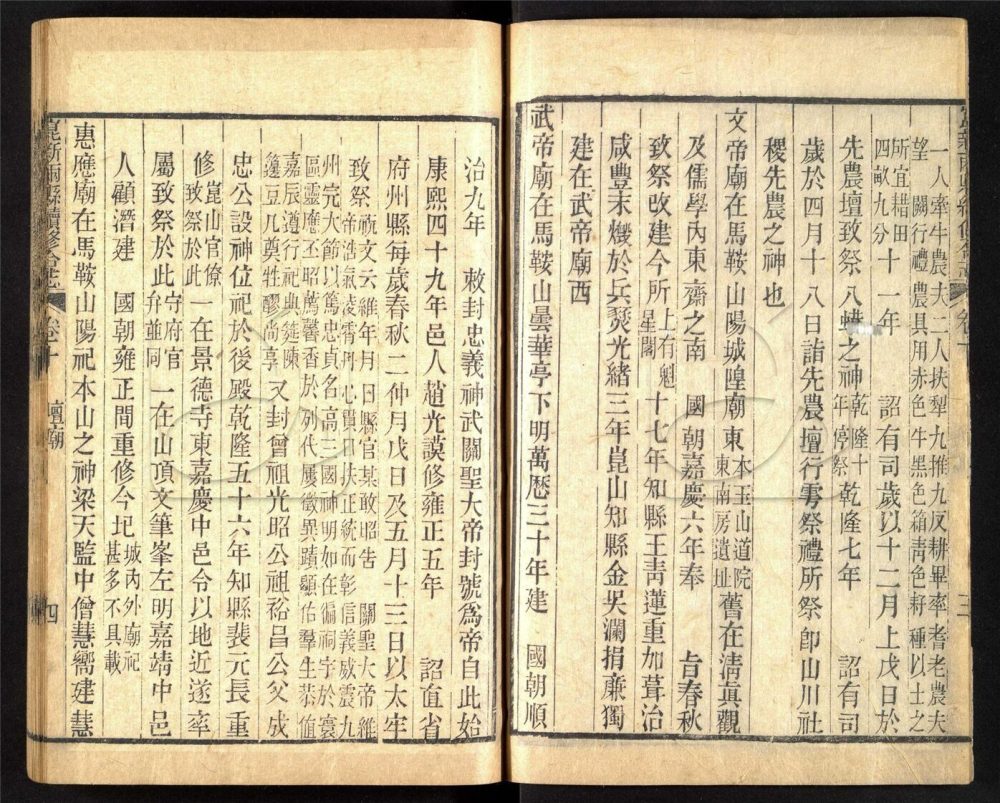 一人牽牛農夫二人扶犁九推九反耕畢率耆老農夫
望闕行禮農具用赤色牛黑色箱靑色籽種以土之
所宜耕田
四畝九分十一年　詔有司歲以十二月上戊日於
先農壇致祭八蜡之神乾隆十
年停祭乾隆七年　詔有司
歲於四月十八日詣先農壇行雩祭禮所祭卽山川社
稷先農之神也
文帝廟在馬鞍山陽城隍廟東本玉山道院
東南房遺址舊在淸眞觀
及儒學內東齋之南　國朝嘉慶六年奉　旨春秋
致祭改建今所上有魁
星閣十七年知縣王靑蓮重加葺治
咸豐末燬於兵燹光緒三年崑山知縣金吳瀾捐廉獨
建在武帝廟西
武帝廟在馬鞍山曇華亭下明萬厯三十年建　國朝順
治九年　敕封忠義神武關聖大帝封號爲帝自此始
康熙四十九年邑人趙光謨修雍正五年　詔直省
府州縣每歲春秋二仲月戊日及五月十三日以太牢
致祭祝文云維年月日縣官某敢昭吿　關聖大帝維
帝浩氣凌霄丹心貫日扶正統而彰信義威震九
州完大節以篤忠貞名高三國神明如在徧祠宇於寰
區靈應丕昭薦馨香於列代屢徵異蹟顯佑羣生恭值
嘉辰遵行祀典筵陳
籩豆几奠牲醪尚享又封曾祖光昭公祖裕昌公父成
忠公設神位祀於後殿乾隆五十六年知縣裴元長重
修崑山官僚
致祭於此一在景德寺東嘉慶中邑令以地近遂率
屬致祭於此守府官
弁並同一在山頂文筆峯左明嘉靖中邑
人顧潛建　國朝雍正間重修今圮城內外廟祀
甚多不具載
惠應廟在馬鞍山陽祀本山之神梁天監中僧慧嚮建慧
崑新兩縣續修合志
卷十　壇廟
四